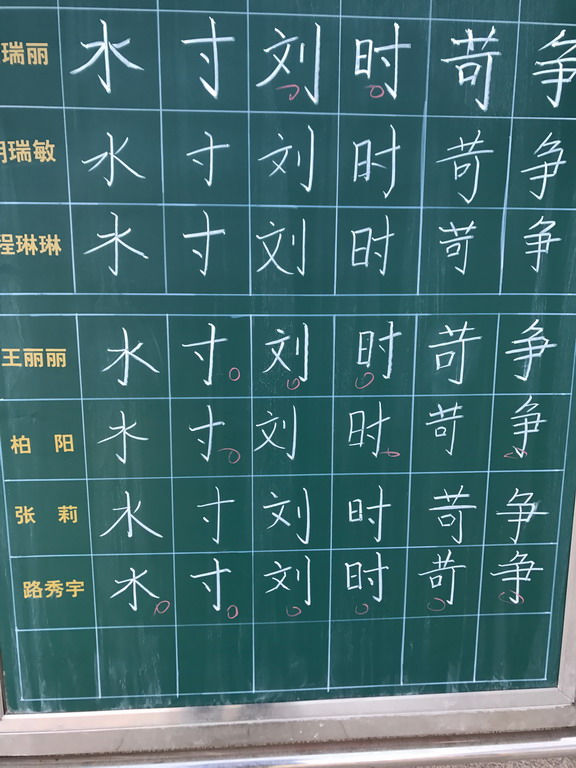 瑞丽 水 寸 刘 时 苛 争
瑞敏 水 寸 刘 时 苛 争
程琳琳 水 寸 刘 时 苛 争
王丽丽 水 寸 刘 时 苛 争
柏 阳 水 寸 刘 时 苛 争
张 莉 水 寸 刘 时 苛 争
路秀宇 水 寸 刘 时 苛 争